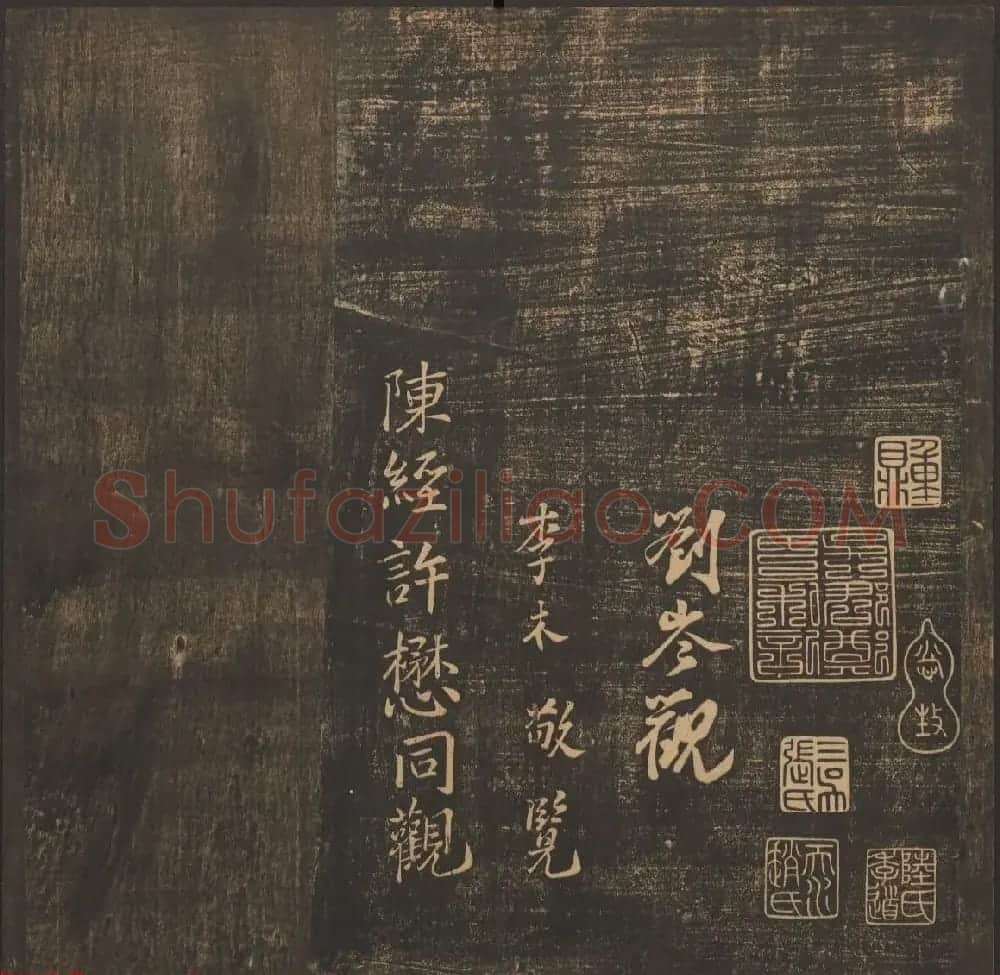 劉岑觀
李木敬覽
陳經許懋同觀
張氏
趙氏
陸氏
Shufaziliao.COM